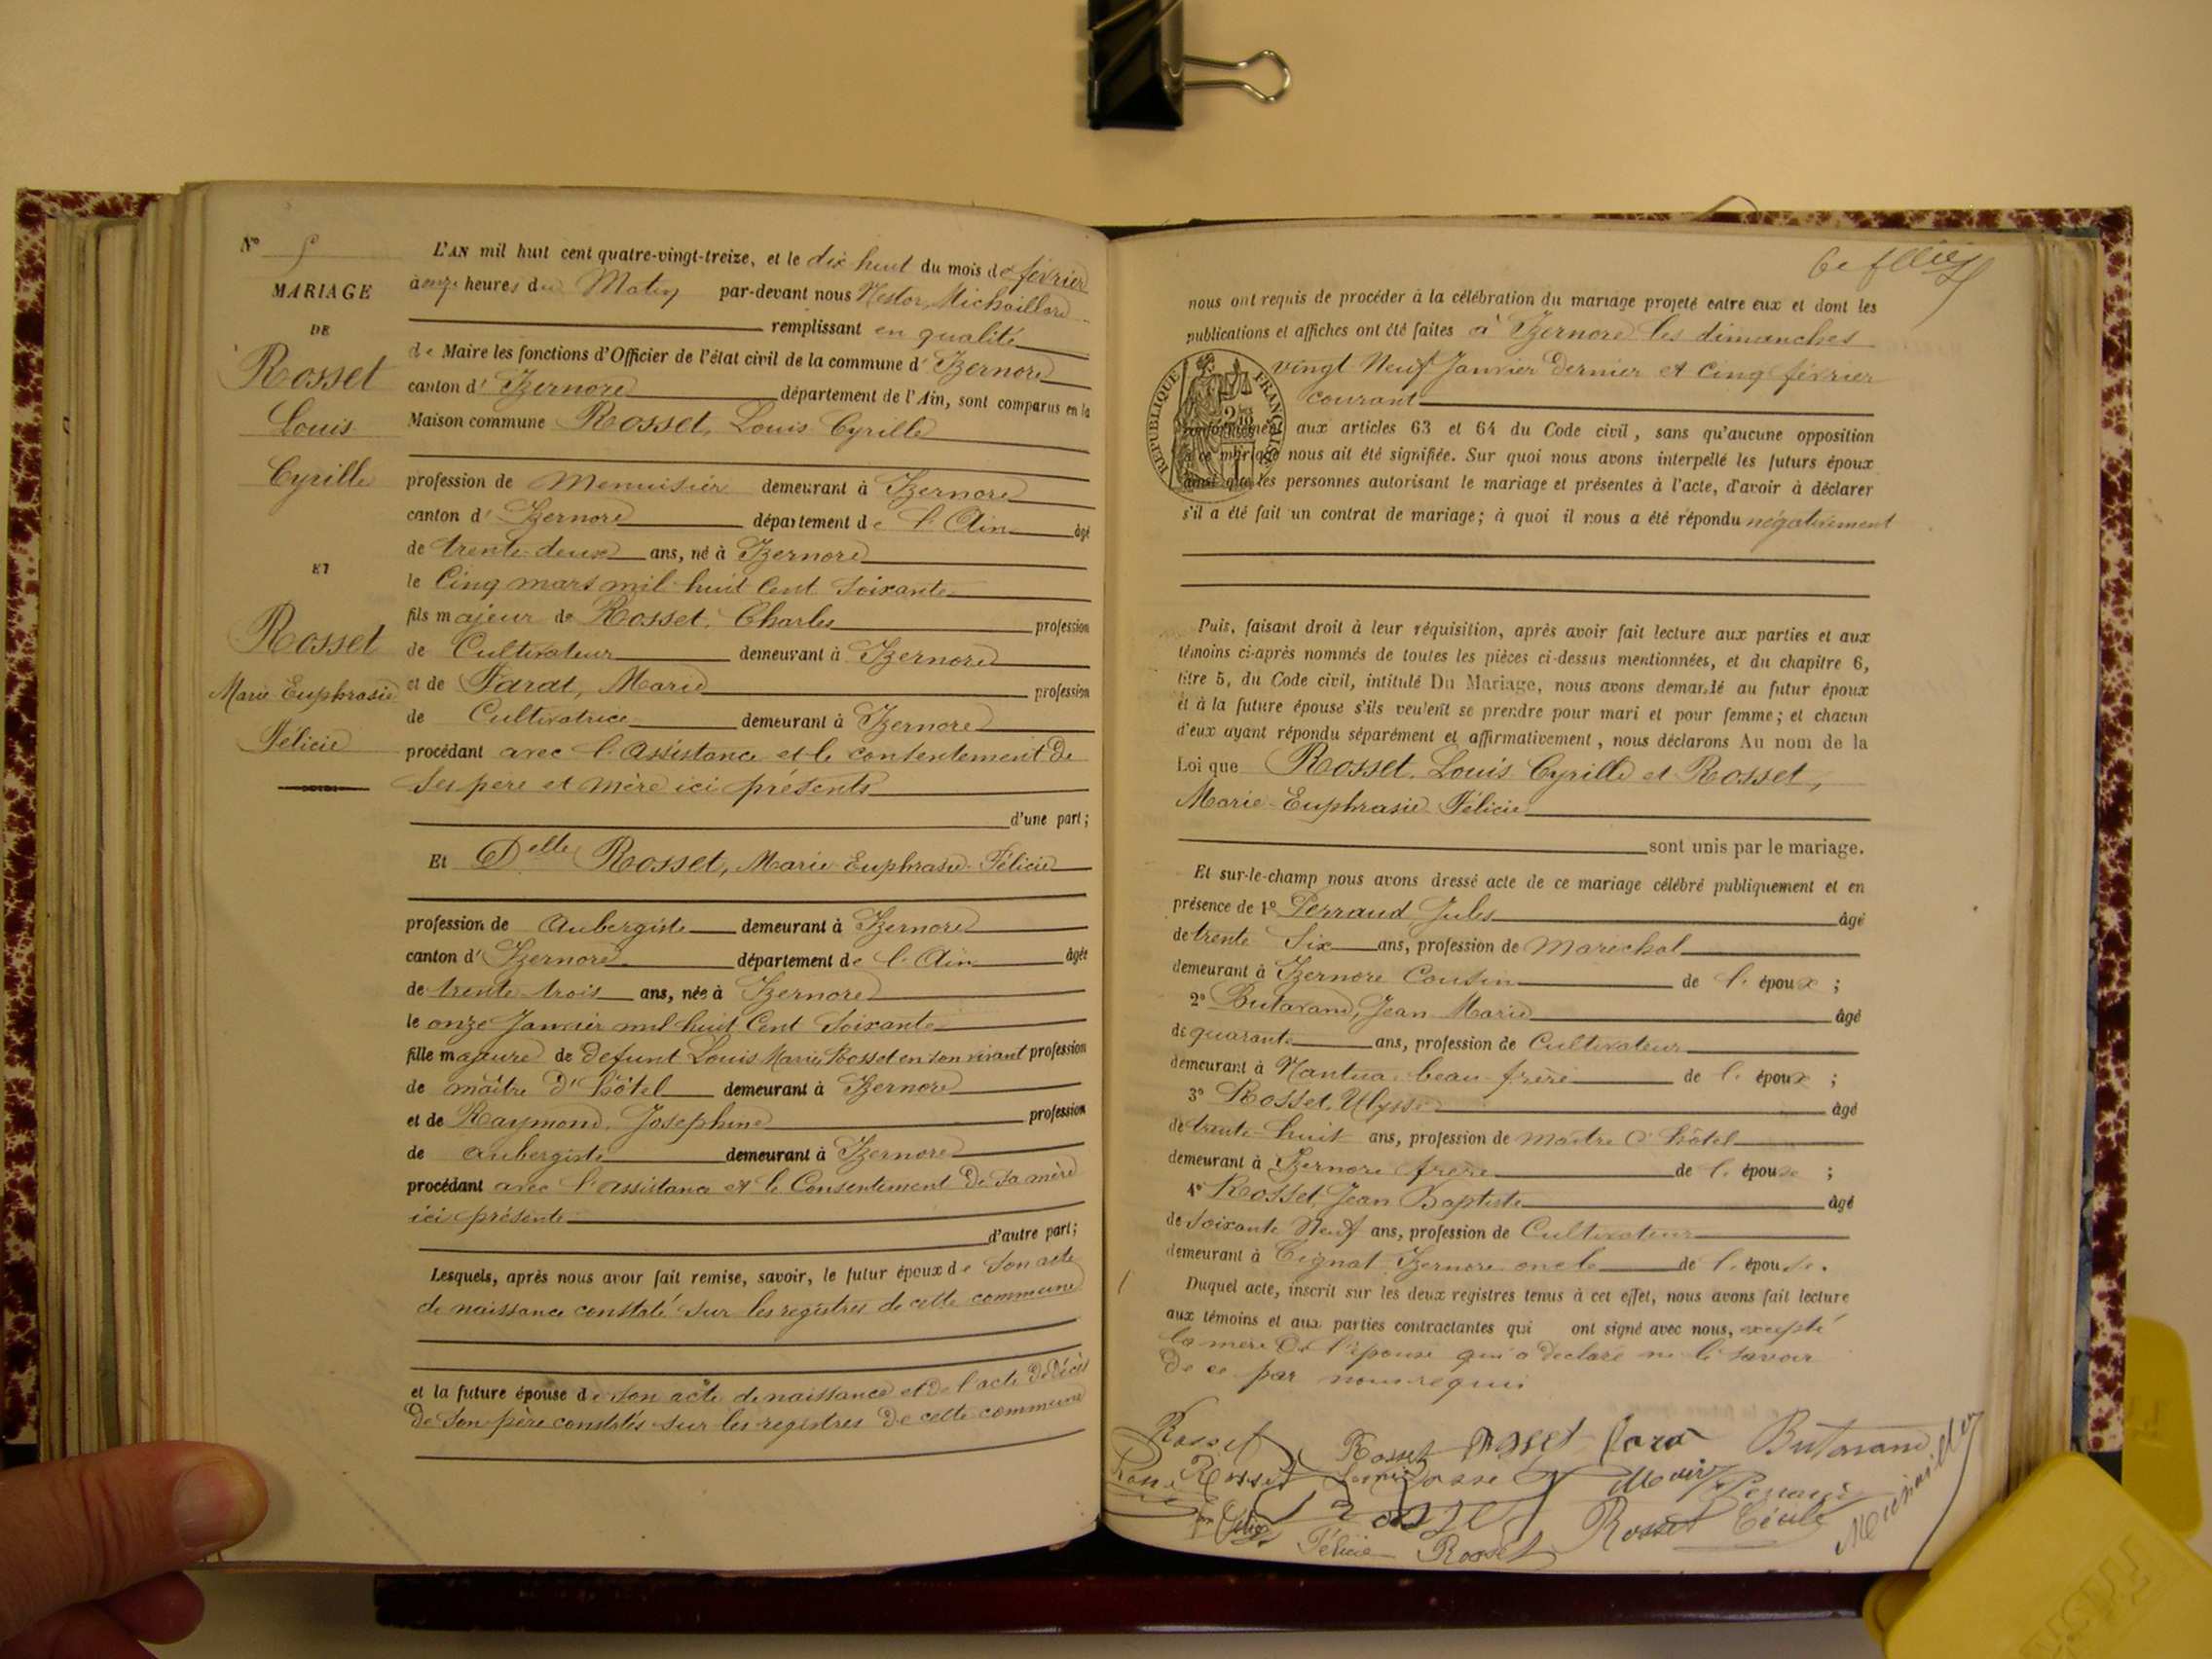 N° 5
MARIAGE
DE
Rosset
Louis
Cyrille
ET
Rosset
Marie Euphrasie
Félicie
L'AN mil huit cent quatre-vingt-treize, et le dix huit du mois de février
à onze heures du Matin par-devant nous Nestor, Michaillard
remplissant en qualité
de Maire les fonctions d'Officier de l'état civil de la commune d'Izernore
canton d'Izernore département de l'Ain, sont comparus en la
Maison commune Rosset, Louis Cyrille
profession de Menuisier demeurant à Izernore
canton d'Izernore département de l'Ain âgé
de trente-deux ans, né à Izernore
le Cinq mars mil huit Cent Soixante
fils majeur de Rosset, Charles profession
de Cultivateur demeurant à Izernore
et de Farat, Marie profession
de Cultivatrice demeurant à Izernore
procédant avec l'Assistance et le consentement de
ses père et mère ici présents
d'une part;
Et Delle Rosset, Marie Euphrasie Félicie
profession de Aubergiste demeurant à Izernore
canton d'Izernore département de l'Ain âgée
de trente trois ans, née à Izernore
le onze Janvier mil huit Cent Soixante
fille majeure de défunt Louis Marie Rosset en son vivant profession
de maître d'hôtel demeurant à Izernore
et de Raymond, Josephine profession
de aubergiste demeurant à Izernore
procédant avec l'assistance et le Consentement de sa mère
ici présente
d'autre part;
Lesquels, après nous avoir fait remise, savoir, le futur époux de son acte
de naissance constaté sur les registres de cette commune
et la future épouse de son acte de naissance et de l'acte de décès
de son père constatés sur les registres de cette commune
nous ont requis de procéder à la célébration du mariage projeté entre eux et dont les
publications et affiches ont été faites à Izernore les dimanches
vingt Neuf Janvier dernier et Cinq février
courant
RÉPUBLIQUE FRANÇAISE
conformément aux articles 63 et 64 du Code civil, sans qu'aucune opposition
à ce mariage nous ait été signifiée. Sur quoi nous avons interpellé les futurs époux
ainsi que les personnes autorisant le mariage et présentes à l'acte, d'avoir à déclarer
s'il a été fait un contrat de mariage; à quoi il nous a été répondu négativement
Puis, faisant droit à leur réquisition, après avoir fait lecture aux parties et aux
témoins ci-après nommés de toutes les pièces ci-dessus mentionnées, et du chapitre 6,
titre 5, du Code civil, intitulé Du Mariage, nous avons demandé au futur époux
et à la future épouse s'ils veulent se prendre pour mari et pour femme; et chacun
d'eux ayant répondu séparément et affirmativement, nous déclarons Au nom de la
Loi que Rosset, Louis Cyrille et Rosset,
Marie Euphrasie Félicie
sont unis par le mariage.
Et sur-le-champ nous avons dressé acte de ce mariage célébré publiquement et en
présence de 1° Perraud, Jules âgé
de trente Six ans, profession de Maréchal
demeurant à Izernore Cousin de l'époux;
2° Butavand, Jean Marie âgé
de quarante ans, profession de Cultivateur
demeurant à Nantua, beau-frère de l'époux;
3° Rosset, Ulysse âgé
de trente-huit ans, profession de maître d'hôtel
demeurant à Izernore frère de l'épouse;
4° Rosset, Jean Baptiste âgé
de soixante Neuf ans, profession de Cultivateur
demeurant à Tignat Izernore oncle de l'épouse.
Duquel acte, inscrit sur les deux registres tenus à cet effet, nous avons fait lecture
aux témoins et aux parties contractantes qui ont signé avec nous, excepté
la mère de l'épouse qui a déclaré ne le savoir
de ce par nous requis
Rosset Rosset Rosset Butavand
Rosset Louis Rosset Marie Perraud
Rosset
Félicie Rosset Rosset Cécile